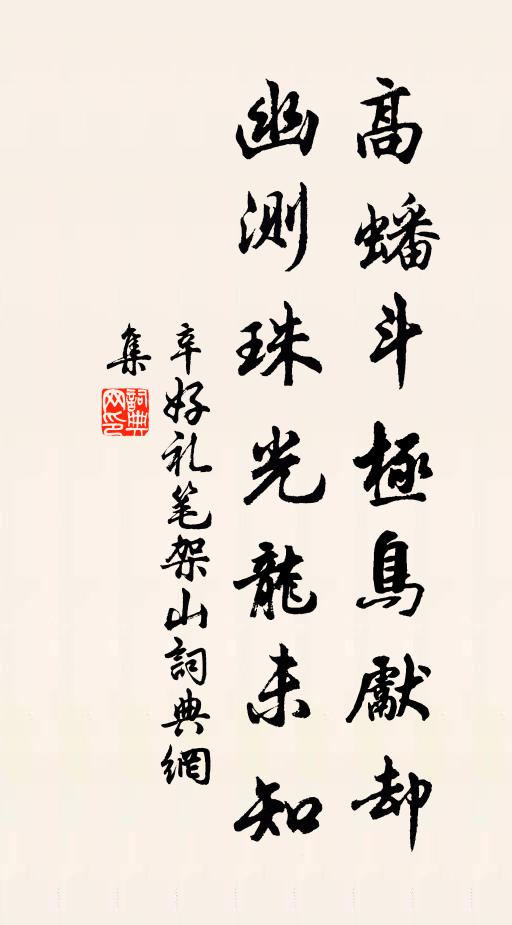 高蟠斗極鳥獻却
幽測珠光龍未知
辛好礼笔架山詞典網
集
詞典网印